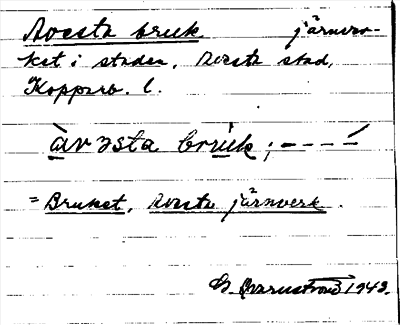 Avesta bruk järnver-
ket i staden, Avesta stad,
Kopparb. l.
àvəsta bruk; - - - ´
= Bruket, Avesta järnverk.
G. Qvarnström 1943.